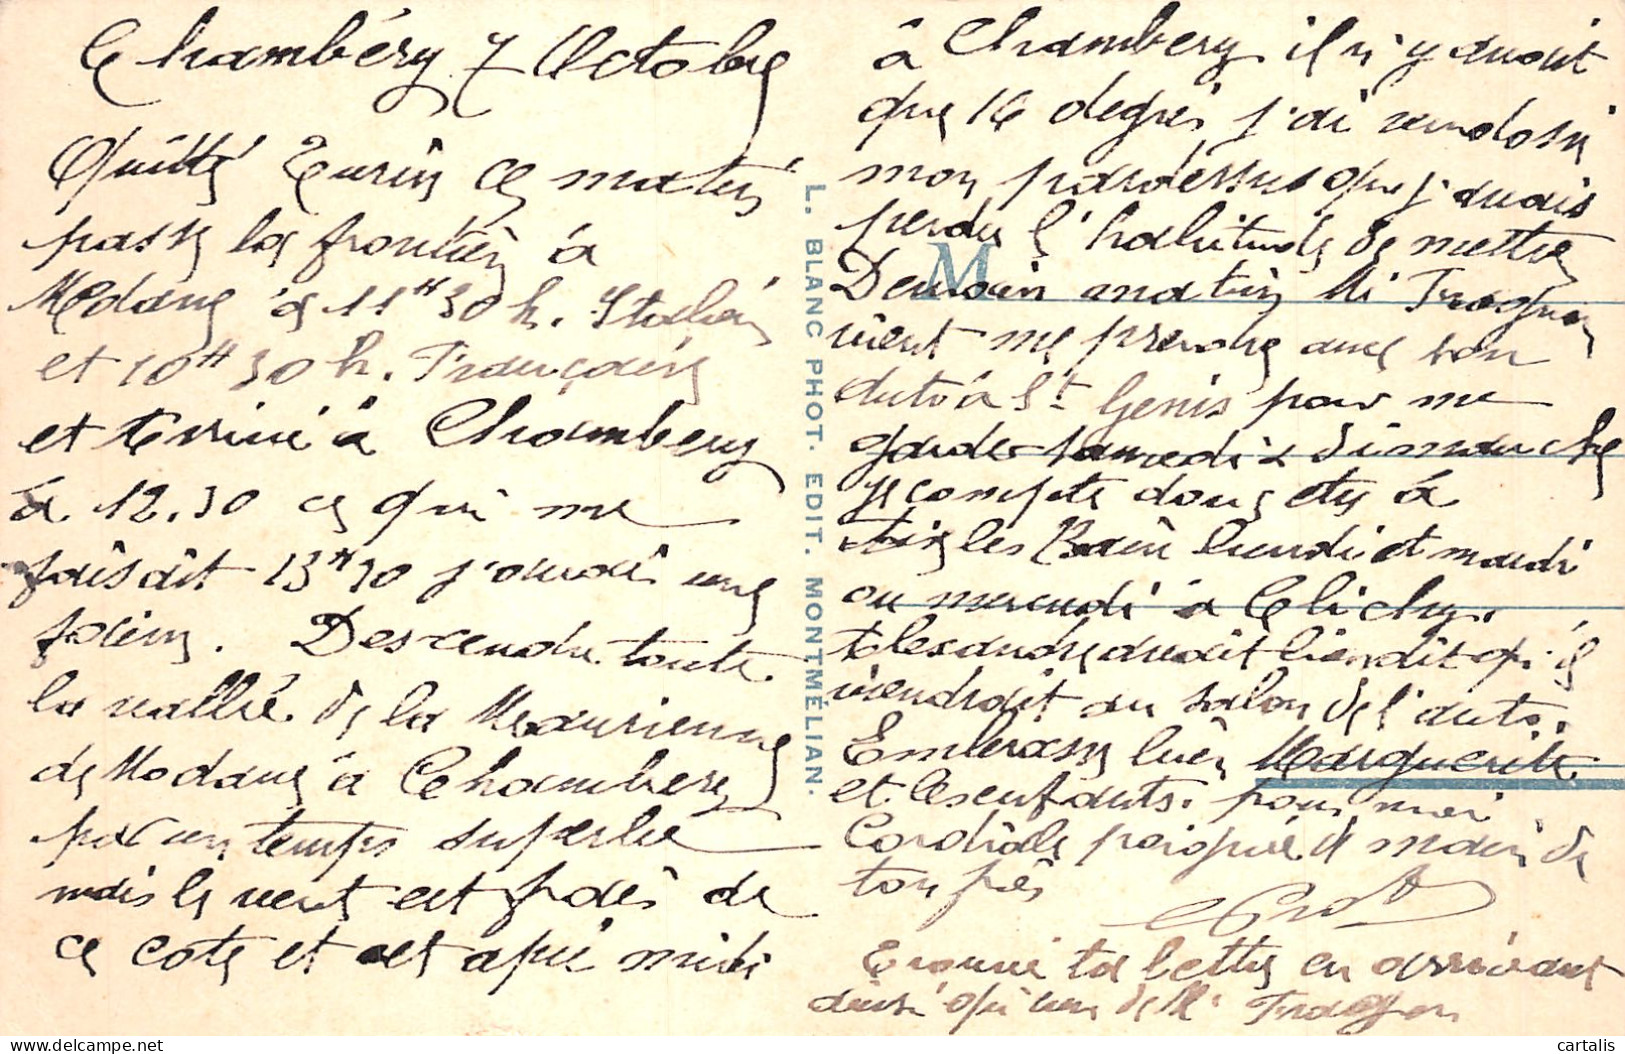 Chambéry 7 Octobre
Quitté Turin ce matin
passé la frontière à
Modane à 11H30 h. Italien
et 10H30 h. Français
et arrivé à Chambery
à 12.30 ce qui me
faisait 13H30 j'avais une
faim. Descendu toute
la vallée de la Maurienne
de Modane à Chambery
par un temps superbe
mais le vent est froid de
ce coté et cet apré midi
à Chambery il n'y avait
que 16 degrés j'ai rendossé
mon pardessus que j'avais
perdu l'habitude de mettre
Demain matin Mr
vient me prendre avec son
auto à St Genis pour me
garder samedi & dimanche
je compte donc etre à
Aix les Bain lundi et mardi
ou mercredi à Clichy.
Alexandre avait bien dit qu'il
viendrait au salon de l'auto.
Embrasse bien Marguerite
et les enfants. pour moi
Cordiale poignée de main de
ton père
Trouvé ta lettre en arrivant
ainsi qu'une de Mr
L. BLANC PHOT. EDIT. MONTMÉLIAN.
M
cartalis
delcampe.net